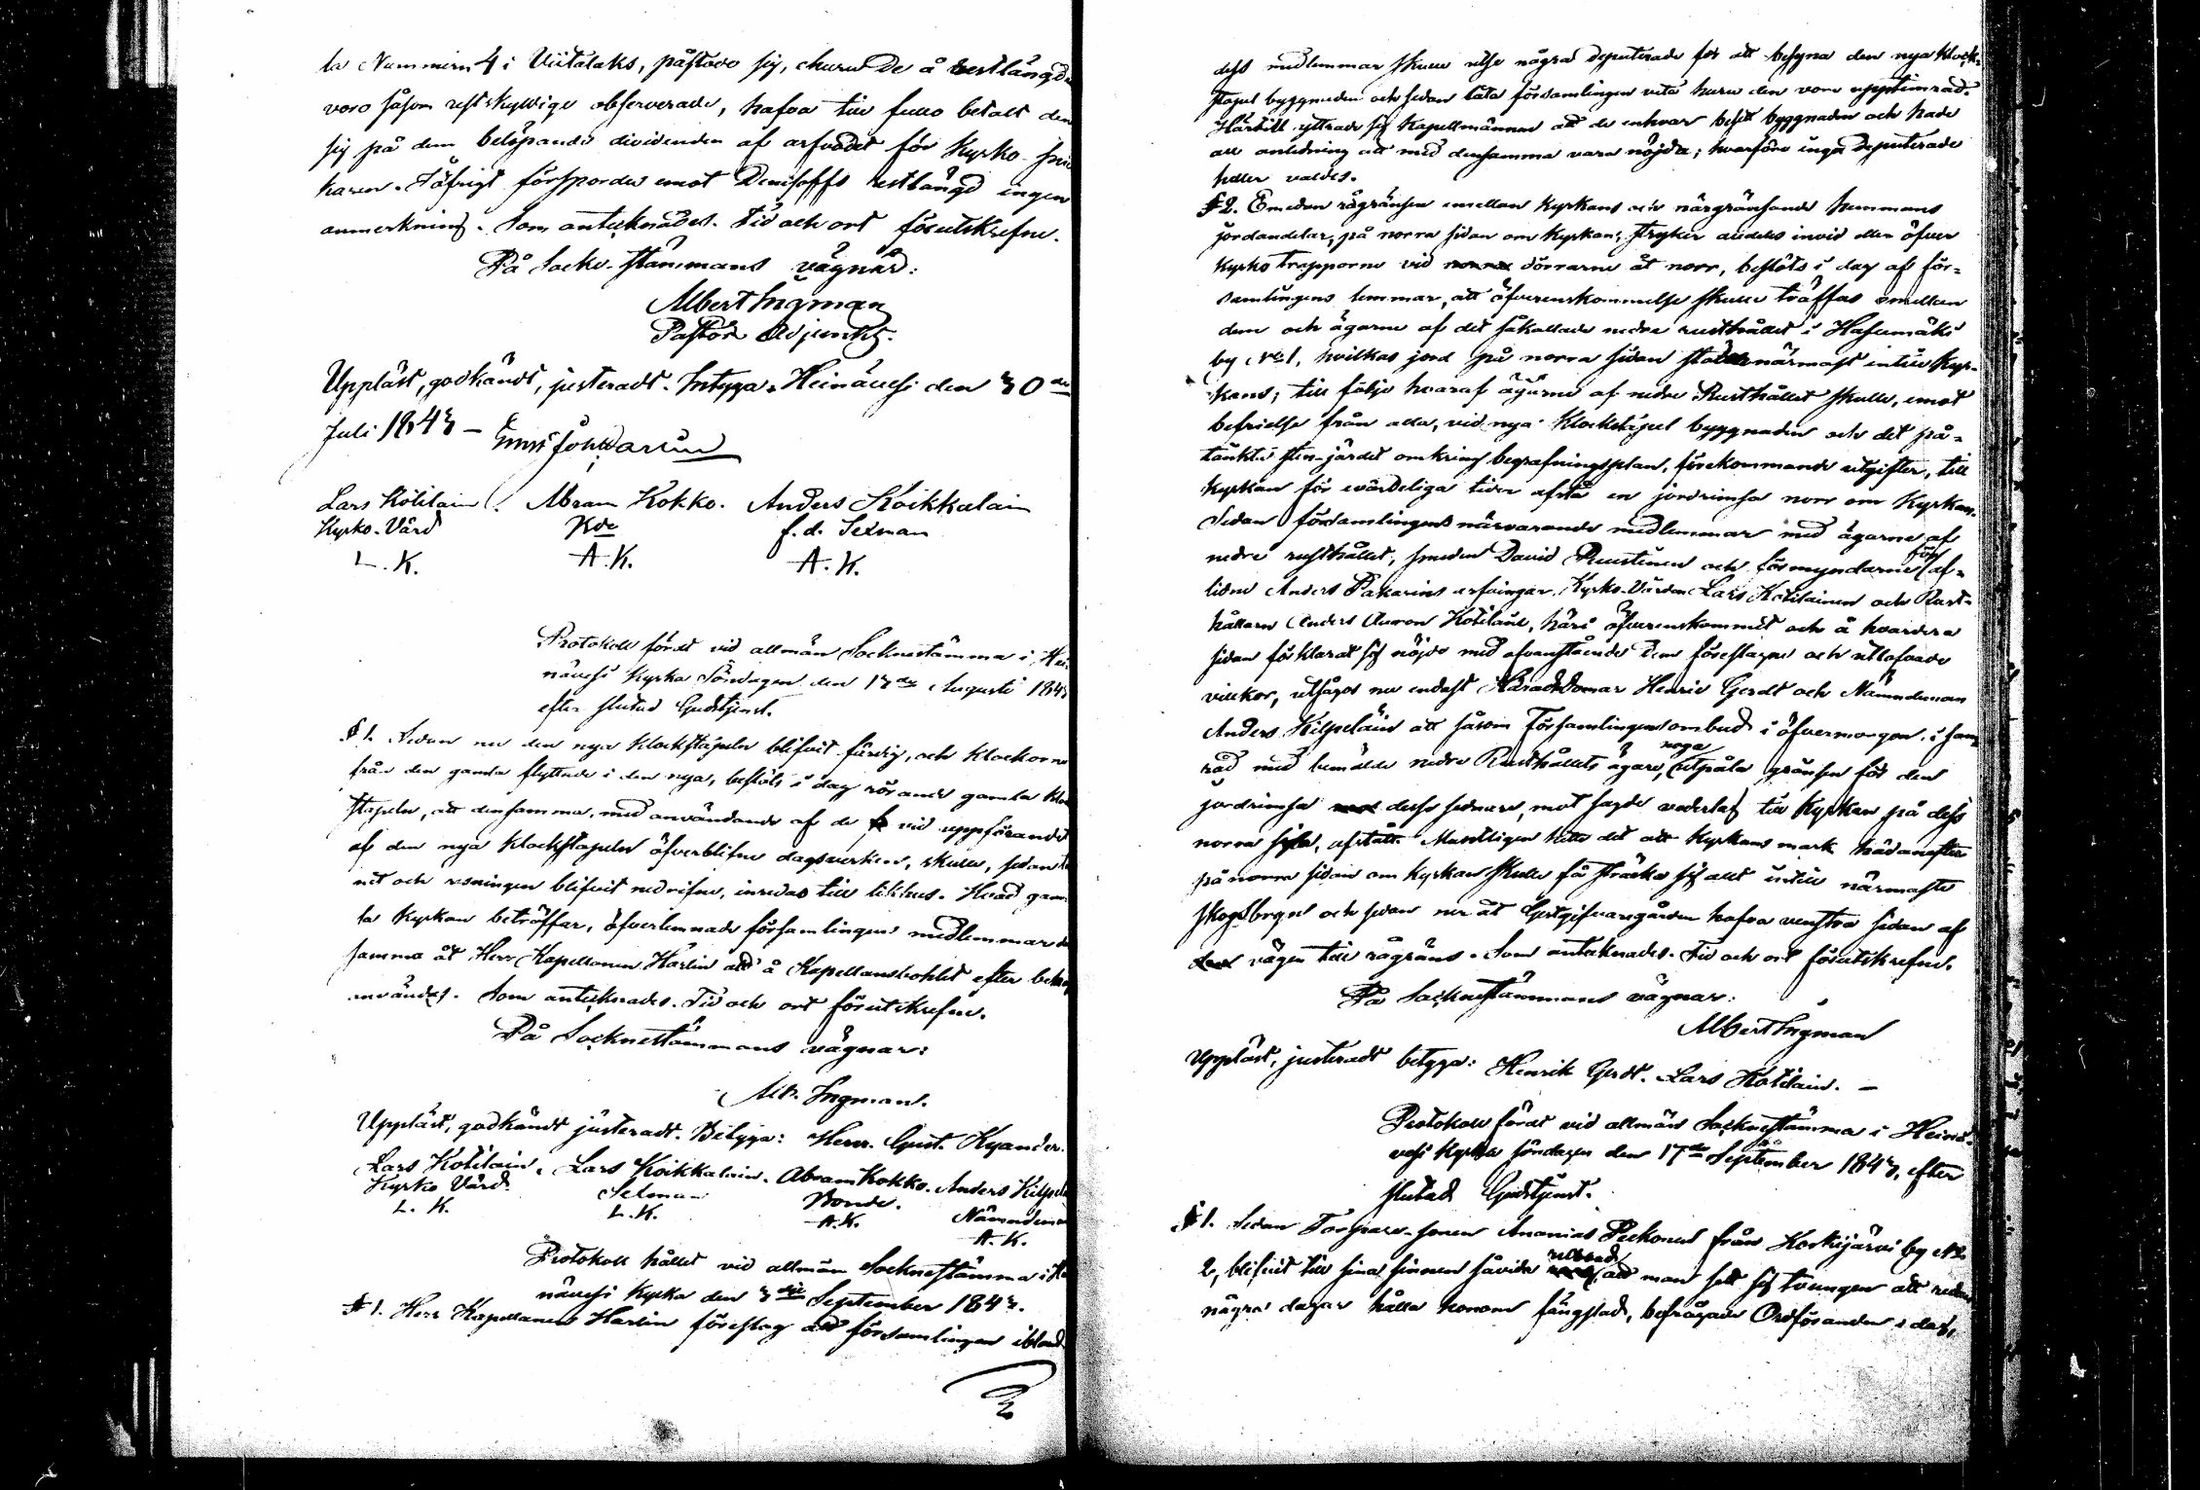 la Nummern 4 i Viitalaks, påstodo sig, churu De å restlängde
voro såsom restskyldige observerade, hafva till fullo betalt den
sig på dem belöpande dividenden af arfvodet för Kyrko-
karen. I öfrigt förspordes emot Denisoffs restlängd ingen
anmerkning. Som antecknades. Tid och ort förutskrefne.
På Sockne-stämmans vägnar:
Albert Ingman
Pastors Adjunkt.
Uppläst, godkändt, justeradt. Intyga. Heinävesi den 30de
Juli 1843 –
Lars Kotilain. Abram Kokko. Anders Koikkalain
Kyrko-Vård Bde f.d. Sexman
L. K. A. K. A. K.
Protokoll fördt vid allmän Socknestämma i Hei-
nävesi Kyrka Söndagen den 13de Augusti 1843
efter slutad Gudstjenst.
§ 1. Sedan nu den nya Klockstapeln blifvit färdig, och klockorne
från den gamla flyttade i den nya, beslöts i dag rörande gamla Kloc
stapeln, att densamma, med användande af de vid uppförandet
af den nya Klockstapeln öfverblifne dagsverken, skulle, sedan
och resningen blifvit nedrifne, inredas till likhus. Hvad gam
la Kyrkan beträffar, öfverlemnade församlingens medlemmar de
samma åt Herr Kapellanen Harlin att å Kapellansbohlet efter behag
användas. Som antecknades. Tid och ort förutskrefne.
På Socknestämmans vägnar:
Alb. Ingman.
Uppläst, godkändt justeradt. Betyga: Herr. Gust. Kyander.
Lars Kotilain. Lars Koikkalain. Abram Kokko. Anders Kilpela
Kyrko Vård. Sexman Bonde. Nämndeman
L. K. L. K. A. K. A. K.
Protokoll hållet vid allmän Socknestämma i He
nävesi Kyrka den 3dje September 1843.
§ 1. Herr Kapellanen Harlin föreslog att församlingen ibland
dess medlemmar skulle utse några Deputerade för att besyna den nya Klock-
stapel byggnaden och sedan låta församlingen veta huru den vore upptimrad.
Härtill yttrade sig Kapellmännen att de enhvar besett byggnaden och hade
all anledning att med densamma vara nöjda; hvarföre inga Deputerade
heller valdes.
§ 2. Emedan rågränsen emellan Kyrkans och närgränsande hemmans
jordandelar, på norra sidan om Kyrkan, stryker alldeles invid eller öfver
Kyrko trapporne vid dörrarne åt norr, beslöts i dag af för-
samlingens lemmar, att öfverenskommelse skulle träffas emellan
dem och ägarne af det såkallade nedre rusthållet i Hasumäki
by No 1, hvilkas jord på norra sidan närmast intill Kyr-
kans; till följe hvaraf ägarne af nedre Rusthållet skulle, emot
befrielse från alla, vid nya Klockstapel byggnaden och det på-
tänkta sten-järdet omkring begrafningsplan, förekommande utgifter, till
Kyrkan för evärdeliga tider afstå en jordrimsa norr om Kyrkan.
Sedan församlingens närvarande medlemmar med ägarne af
nedre rusthållet, smeden David Ruustinen och förmyndarne för af-
lidne Anders Pakarins arfvingar, Kyrko-Värden Lars Kotilainen och Rust-
hållaren Anders Aaron Kotilain, häri öfverenskommit och å hvardera
sidan förklarat sig nöjde med ofvanstående dem föreslagne och utlofvade
villkor, utsågos nu endast Häradsdomar Henric Gerdt och Nämndeman
Anders Kilpeläin att såsom Församlingens ombud i öfvermorgon, i sam
råd med bemälde nedre Rusthållets ägare, noga utpåla gränsen för den
jordrimsa desse sednare, mot sagde vederlag till Kyrkan på dess
norra sida, afstått. Muntligen hette det att Kyrkans mark hädanefter
på norra sidan om Kyrkan skulle få sträcka sig allt intill närmaste
skogsbrynet och sedan ner åt Gästgifvaregården hafva venstra sidan af
vägen till rågräns. Som antecknades. Tid och ort förutskrefne.
På Socknestämmans vägnar:
Albert Ingman
Uppläst, justeradt betyga: Henrik Gerdt. Lars Kotilain. –
Protokoll fördt vid allmän Socknestämma i Heinä-
vesi Kyrka söndagen den 17de September 1843, efter
slutad Gudstjenst.
§ 1. Sedan Torpare-sonen Ananias Pekonen från Korkijärvi by No
2, blifvit till sina sinnen såvida rubbad att man sett sig tvungen att redan
några dagar hålla honom fängslad, befrågade Ordföranden i dag,